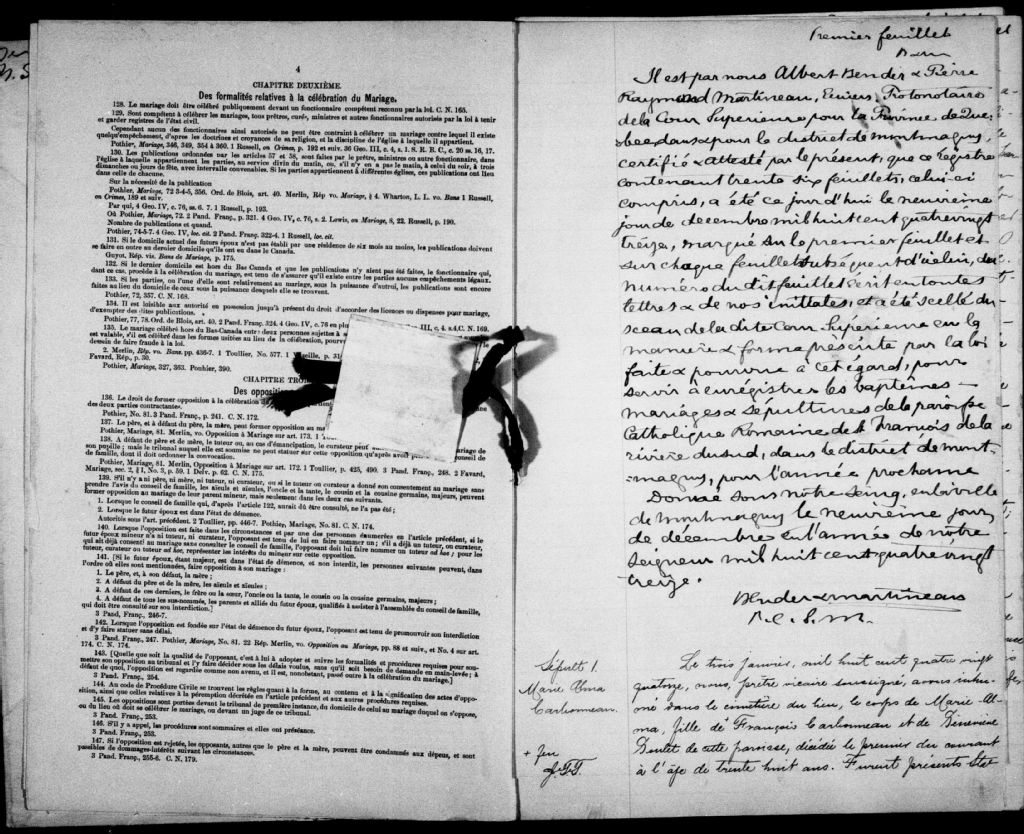 4
CHAPITRE DEUXIÈME.
Des formalités relatives à la célébration du Mariage.
128. Le mariage doit être célébré publiquement devant un fonctionnaire compétent reconnu par la loi. C. N. 165.
129. Sont compétents à célébrer les mariages, tous prêtres, curés, ministres et autres fonctionnaires autorisés par la loi à tenir
et garder registres de l'état civil.
Cependant aucun des fonctionnaires ainsi autorisés ne peut être contraint à célébrer un mariage contre lequel il existe
quelqu'empêchement, d'après les doctrines et croyances de sa religion, et la discipline de l'église à laquelle il appartient.
Pothier, Mariage, 346, 349, 354 & 360. 1 Russell, on Crimes, p. 192 et suiv. 36 Geo. III, c. 4, s. 1. S. R. B. C., c. 20 ss. 16, 17.
130. Les publications ordonnées par les articles 57 et 58, sont faites par le prêtre, ministre ou autre fonctionnaire, dans
l'église à laquelle appartiennent les parties, au service divin du matin, ou, s'il n'y en a pas le matin, à celui du soir, à trois
dimanches ou jours de fête, avec intervalle convenables. Si les parties appartiennent à différentes églises, ces publications ont lieu
dans celle de chacune.
Sur la nécessité de la publication
Pothier, Mariage, 72 3-4-5, 356. Ord. de Blois, art. 40. Merlin, Rép vo. Mariage, § 4. Wharton, L. L. vo. Bans 1 Russell,
en Crimes, 189 et suiv.
Par qui, 4 Geo. IV, c. 76, ss. 6. 7. 1 Russell, p. 193.
Où Pothier, Mariage, 72. 2 Pand. Franç., p. 321. 4 Geo. IV, c. 76, s. 2. Lewis, on Mariage, 8, 22. Russell, p. 190.
Nombre de publications et quand.
Pothier, 74-5-7. 4 Geo. IV, loc. cit. 2 Pand. Franç. 322-4. 1 Russell, loc. cit.
131. Si le domicile actuel des futurs époux n'est pas établi par une résidence de six mois au moins, les publications doivent
se faire en outre au dernier domicile qu'ils ont eu dans le Canada.
Guyot, Rép. vis. Bans de Mariage, p. 175.
132. Si le dernier domicile est hors du Bas Canada et que les publications n'y aient pas été faites, le fonctionnaire qui,
dans ce cas, procède à la célébration du mariage, est tenu de s'assurer qu'il existe entre les parties aucuns empêchements légaux.
133. Si les parties, ou l'une d'elle sont relativement au mariage, sous la puissance d'autrui, les publications sont encore
faites au lieu du domicile de ceux sous la puissance desquels elle se trouvent.
Pothier, 72, 357. C. N. 168.
134. Il est loisible aux autorité en possession jusqu'à présent du droit d'accorder des licences ou dispenses pour mariage,
d'exempter des dites publications.
Pothier, 77, 78. Ord. de Blois, art. 40. 2 Pand Franç. 324. 4 Geo. IV, c. 76 en plu III, c. 4. s.4. C. N. 169.
135. Le mariage célébré hors du Bas-Canada entre deux personnes sujettes à
est valable, s'il est célébré dans les formes usitées au lieu de la célébration, pourvu
dessein de faire fraude à la loi.
2. Merlin, Rép. vo. Bans. pp. 436-7. 1 Toullier, No. 577. 1 Marseille, p. 31
Favard, Rép., p. 30.
Pothier, Mariage, 327, 363. Ponhier, 390.
CHAPITRE TROI
Des opposition
136. Le droit de former opposition à la célébration
des deux parties contractantes.
Pothier, No. 81. 3 Pand Franç., p. 241. C. N. 172.
137. Le père, et à défaut du père, la mère, peut former opposition au ma
Pothier, Mariage, 81. Merlin, vo. Opposition à Mariage sur art. 173. 1
138. A défaut de père et de mère, le tuteur ou, au cas d'émancipation, le curateur peut
son pupille; mais le tribunal auquel elle est soumise ne peut statuer sur cette opposition qu'après avoir pris
de famille, dont il doit ordonner la convocation.
Pothier, Mariage, 81. Merlin, Opposition à Mariage sur art. 172. 1 Toullier, p. 425, 490. 3 Pand Franç., 248. 2 Favard,
Mariage, sec. 2, § 1, No. 3, p. 59. 1 Delv. p. 62. C. N. 175.
139. S'il n'y a ni père, ni mère, ni tuteur, ni curateur, ou si le tuteur ou curateur a donné son consentement au mariage sans
prendre l'avis du conseil de famille, les aïeuls et aïeules, l'oncle et la tante, le cousin et la cousine germains, majeurs, peuvent
former opposition au mariage de leur parent mineur, mais seulement dans les deux cas suivants.
1. Lorsque le conseil de famille qui, d'après l'article 122, aurait dû être consulté, ne l'a pas été;
2. Lorsque le futur époux est dans l'état de démence.
Autorités sous l'art. précédent. 2 Toullier, pp. 446-7. Pothier, Mariage, No. 81. C. N. 174.
140. Lorsque l'opposition est faite dans les circonstances et par une des personnes énumérées en l'article précédent, si le
futur époux mineur n'a ni tuteur, ni curateur, l'opposant est tenu de lui en faire nommer un; s'il a déjà un tuteur, ou curateur,
qui ait déjà consenti au mariage sans consulter le conseil de famille, l'opposant doit lui faire nommer un tuteur ad hoc; pour les
tuteur, curateur ou tuteur ad hoc, représenter les intérêts du mineur sur cette opposition.
141. [Si le futur époux, étant majeur, est dans l'état de démence, et non interdit, les personnes suivantes peuvent, dans
l'ordre où elles sont mentionnées, faire opposition à son mariage:
1. Le père, et, à son défaut, la mère;
2. A défaut du père et de la mère, les aïeuls et aïeules;
3. A défaut de ces derniers, le frère ou la sœur, l'oncle ou la tante, le cousin ou la cousine germains, majeurs;
4. A défaut de tous les sus-nommés, les parents et alliés du futur époux, qualifiés à assister à l'assemblée du conseil de famille,
qui doit être consulté sur son interdiction.]
3 Pand. Franç., 246-7.
142. Lorsque l'opposition est fondée sur l'état de démence du futur époux, l'opposant est tenu de promouvoir son interdiction
et d'y faire statuer sans délai.
3 Pand. Franç., 247. Pothier, Mariage, No. 81. 22 Rép. Merlin, vo. Opposition au Mariage, pp. 88 et suiv., et No. 4 sur art.
174. C. N. 174.
143. [Quelle que soit la qualité de l'opposant, c'est à lui à adopter et suivre les formalités et procédures requises pour sou-
mettre son opposition au tribunal et l'y faire décider sous les délais voulus, sans qu'il soit besoin de demande en main-levée; à
défaut de quoi, l'opposition est regardée comme non avenu, et il est, nonobstant, passé outre à la célébration du mariage.]
3 Pand. Franç., 254.
144. Au code de Procédure Civile se trouvent les règles quant à la forme, au contenu et à la signification des actes d'oppo-
sition, ainsi que celles relatives à la péremption décrétée en l'article précédent et aux autres procédures requises.
145. Les oppositions sont portées devant le tribunal de première instance, du domicile de celui au mariage duquel on s'oppose,
ou du lieu où doit se célébrer le mariage, ou devant un juge de ce tribunal.
3 Pand. Franç., 253.
146. S'il y a appel, les procédures sont sommaires et elles ont préséance.
3 Pand. Franç., 253.
147. Si l'opposition est rejetée, les opposants, autres que le père et la mère, peuvent être condamnés aux dépens, et sont
passibles de dommages-intérêts suivant les circonstances.
3 Pand. Franç., 255-6. C. N. 179.
Premier feuillet
Il est par nous Albert Bender & Pierre
Raymond Martineau, Ecuiers, Protonotaire
de la Cour Supérieure pour la Province de Qué-
bec, dans & pour le district de Montmagny,
certifié & attesté par le présent, que ce régistre
contenant trente six feuillets, celui-ci
compris, a été ce jour d'hui le neuvième
jour de décembre mil huit cent quatre vingt
treize, marqué sur le premier feuillet et
sur chaque feuillet subséquent d'icelui, du
numéro du dit feuillet écrit en toutes
lettres & de nos initiales, et a été scellé du
sceau de la dite Cour Supérieure en la
manière & forme présente par la loi
faite & pourvue à cet égard, pour
servir à enrégistrer les baptêmes—
mariages & sépultures de la paroisse
Catholique Romaine de St François de la
rivière du sud, dans le district de Mont-
-magny, pour l'année prochaine
Donné sous notre seing, en la ville
de Montmagny le neuvième jour
de décembre en l'année de notre
Seigneur mil huit cent quatre vingt
treize.
Bender & Martineau
P. C. S. M.
Sépult 1.
Marie Alma
Carbonneau.
+ Jeu
J. F. T.
Le trois janvier, mil huit cent quatre vingt
quatorze, nous, prêtre vicaire soussigné, avons inhu-
mé dans le cimetière du lieu, le corps de Marie-Al-
ma, fille de François Carbonneau et de Génévieve
Boulet de cette paroisse, décédée le premier du courant
à l'âge de trente huit ans. Furent présents